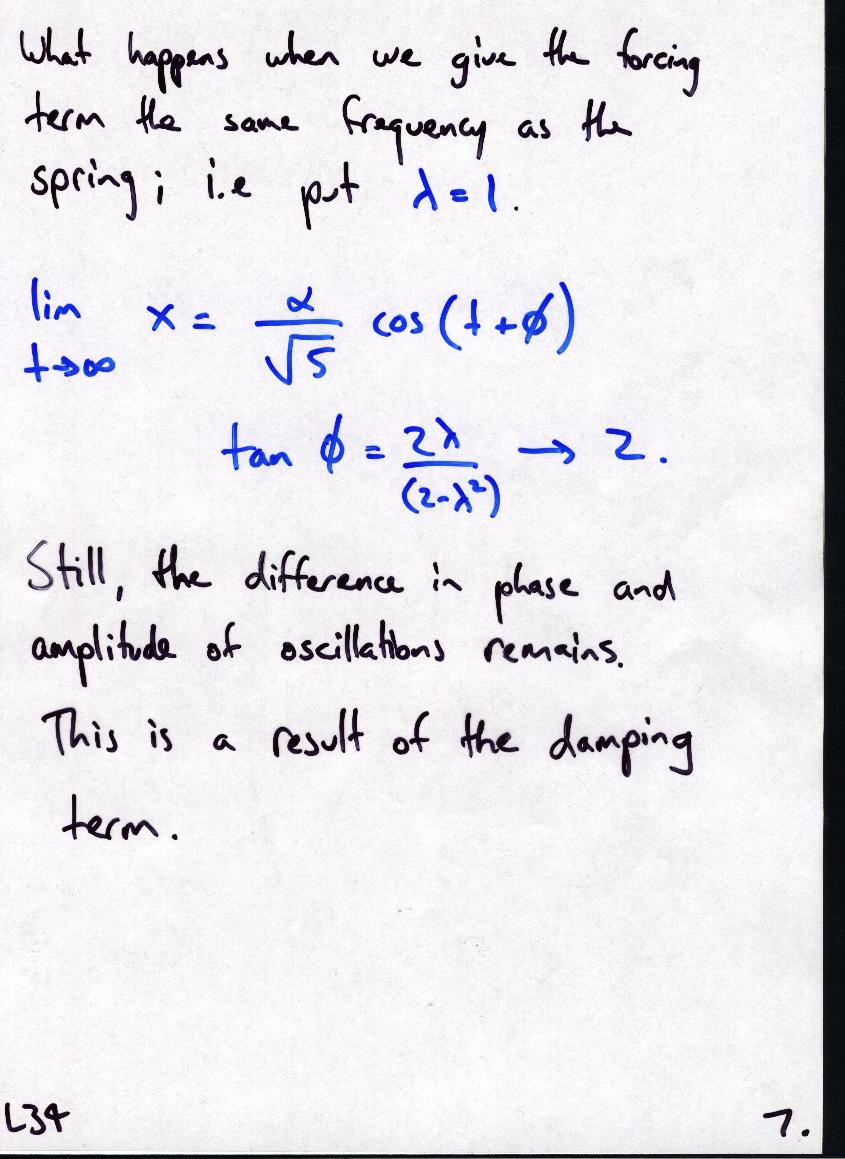 What happens when we give the forcing
term the same frequency as the
spring; i.e put λ = 1.
lim t→∞ x = α/√5 cos (t + φ)
tan φ = 2λ/(2-λ²) → 2.
Still, the difference in phase and
amplitude of oscillations remains.
This is a result of the damping
term.
L34
7.